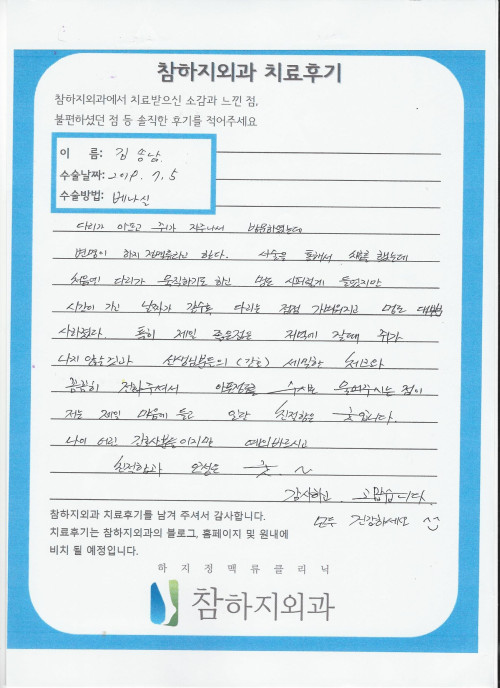 참하지외과 치료후기
참하지외과에서 치료받으신 소감과 느낀 점,
불편하셨던 점 등 솔직한 후기를 적어주세요
이 름: 김송남
수술날짜: 2019. 7. 5
수술방법: 베나실
다리가 아프고 쥐가 자주나서 방문하였는데
병명이 하지 정맥류라신 한다. 시술을 통해서 했는데
처음에 다리가 움직이기도 하신 멍도 시퍼렇게 들었지만
시간이 가고 날짜가 갈수록 다리는 점점 가벼워지고 멍도
사라졌다. 특히 제일 좋은점은 저녁에 잘때 쥐가
나지 않는것과 선생님분들의 (간호) 세밀한 체크와
꼼꼼히 전화주셔서 아픈곳을 수시로 물어주시는 점이
저는 제일 마음에 들고 친절함은 굿입니다.
나이 어린 간호사분들이지만 예의바르시고
친절함과 은 굿. ~
감사하고 고맙습니다.
모두 건강하세요
참하지외과 치료후기를 남겨 주셔서 감사합니다.
치료후기는 참하지외과의 블로그, 홈페이지 및 원내에
비치 될 예정입니다.
하지정맥류클리닉
참하지외과